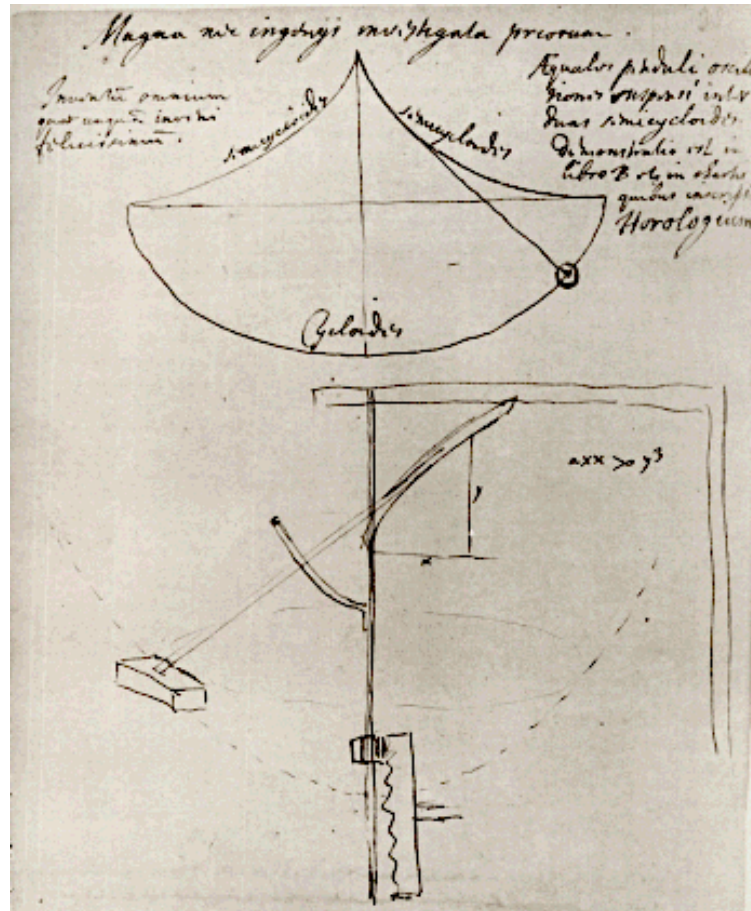 Magna nec ingenijs investigata priorum.
Inventum omnium
quae unquam inveni
felicissimum.
Æquales penduli oscill
tiones suspensi inter
duas semicycloides.
Demonstratio est in
libro B et in chartis
quibus inscript
Horologium
semicycloides
semicycloides
Cycloides
axx ∞ y³
y
x